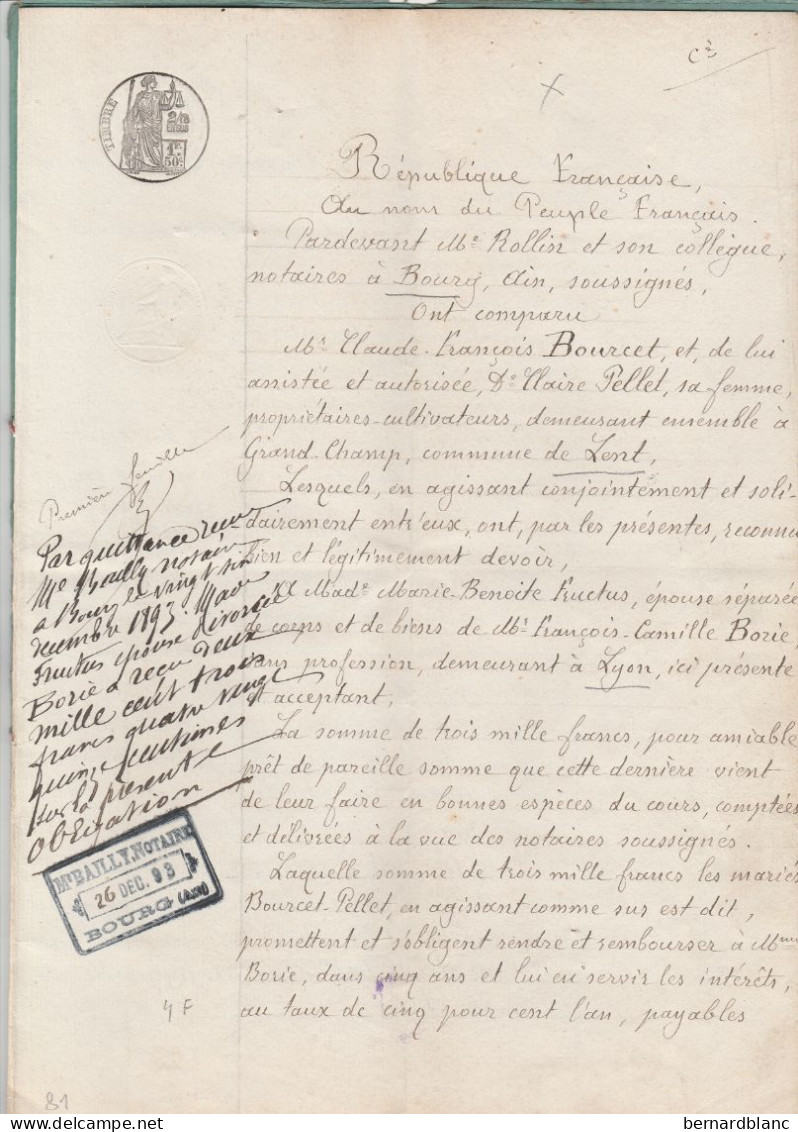 TIMBRE
2/10
EN SUS
1F.
50c.
République Française,
Au nom du Peuple Français.
Pardevant Me. Rollin et son collègue,
notaires à Bourg, Ain, soussignés,
Ont comparu
Mr. Claude-François Bourcet, et, de lui
assistée et autorisée, De. Claire Pellet, sa femme,
propriétaires-cultivateurs, demeurant ensemble à
Grand-Champ, commune de Lent,
Lesquels, en agissant conjointement et soli-
dairement entr'eux, ont, par les présentes, reconnu
bien et légitimement devoir,
A Made. Marie-Benoite Fructus, épouse séparée
de corps et de biens de Mr. François-Camille Borie,
sans profession, demeurant à Lyon, ici présente
et acceptant,
La somme de trois mille francs, pour amiable
prêt de pareille somme que cette dernière vient
de leur faire en bonnes espèces du cours, comptées
et délivrées à la vue des notaires soussignés.
Laquelle somme de trois mille francs les mariés
Bourcet-Pellet, en agissant comme sus est dit,
promettent et s'obligent rendre et rembourser à Mme
Borie, dans cinq ans et lui en servir les intérêts,
au taux de cinq pour cent l'an, payables
Première feuille
Par quittance reçue
Me Bailly notaire
a Bourg le vingt six
decembre 1893. Made
Fructus épouse divorcée
Borie a reçu deux
mille cent trois
francs quatre vingt
quinze centimes
sur la présente
obligation
Me BAILLY, NOTAIRE
26 DEC. 93
BOURG (AIN)
4 F
81
bernardblanc